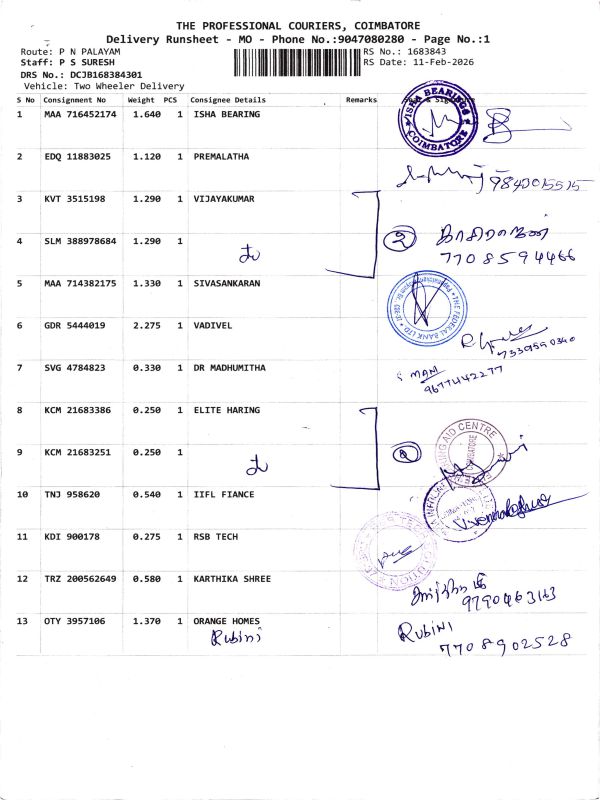 THE PROFESSIONAL COURIERS, COIMBATORE
Delivery Runsheet - MO - Phone No.:9047080280 - Page No.:1
Route: P N PALAYAM RS No.: 1683843
Staff: P S SURESH RS Date: 11-Feb-2026
DRS No.: DCJB168384301
Vehicle: Two Wheeler Delivery
S No Consignment No Weight PCS Consignee Details Remarks
1 MAA 716452174 1.640 1 ISHA BEARING
ISHA BEARINGS COIMBATORE
2 EDQ 11883025 1.120 1 PREMALATHA
9842015515
3 KVT 3515198 1.290 1 VIJAYAKUMAR
4 SLM 388978684 1.290 1
2
7708594466
5 MAA 714382175 1.330 1 SIVASANKARAN
THE FEDERAL BANK LTD
6 GDR 5444019 2.275 1 VADIVEL
7339590340
7 SVG 4784823 0.330 1 DR MADHUMITHA
S MANI
9677442277
8 KCM 21683386 0.250 1 ELITE HARING
AID CENTRE
COIMBATORE
9 KCM 21683251 0.250 1
10 TNJ 958620 0.540 1 IIFL FIANCE
11 KDI 900178 0.275 1 RSB TECH
12 TRZ 200562649 0.580 1 KARTHIKA SHREE
9790463163
13 OTY 3957106 1.370 1 ORANGE HOMES
Rubini
RUBINI
7708902528